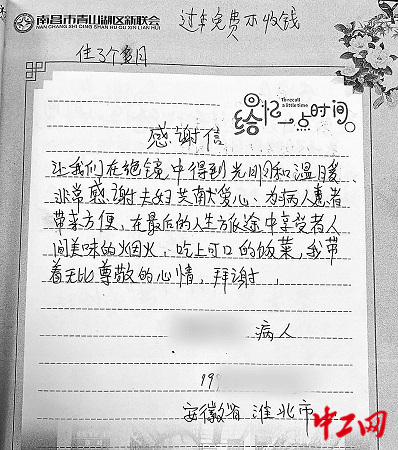 南昌市青山湖区新联会
NAN CHANG SHI QING SHAN HU QU XIN LIAN HUI
过年免费不收钱
住3个月
To recall
a little time
给忆一点时间。
感谢信
让我们在绝镜中得到光明和温暖
非常感谢夫妇献爱心、为病人患者
带来方便，在最后的人生旅途中享受者人
间美味的烟火，吃上可口的饭菜，我带
着无比尊敬的心情，拜谢，
病人
19
安徽省淮北市
中工网